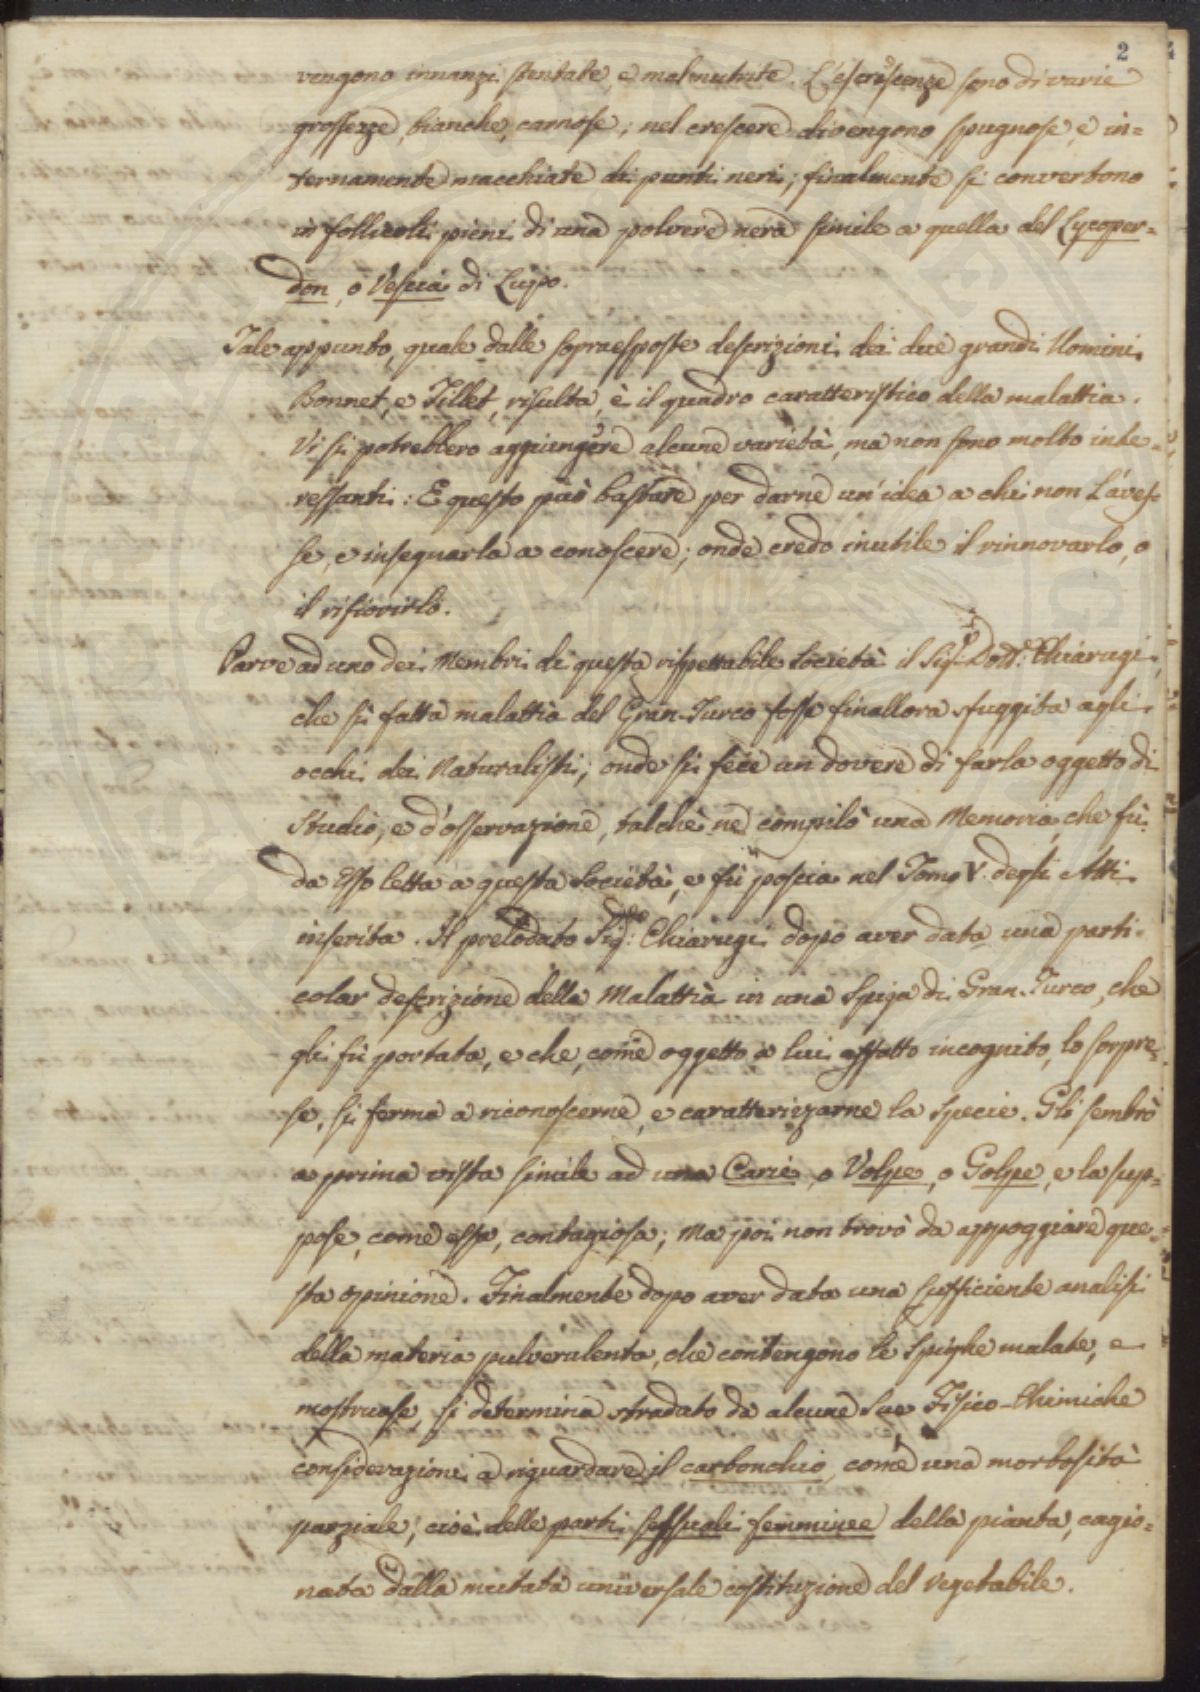 2
vengono innanzi stentate, e malnutrite. L'escrescenze sono di varie
grossezze, bianche, carnose; nel crescere divengono spugnose, e in=
ternamente macchiate di punti neri; finalmente si convertono
in follicoli pieni di una polvere nera simile a quella del Lycoper=
don, o Vescia di Lupo.
Tale appunto, quale dalle sopraesposte descrizioni dei due grandi Uomini
Bonnet, e Tillet, risulta, è il quadro caratteristico della malattia.
Vi si potrebbero aggiungere alcune varietà, ma non sono molto inte=
ressanti: E questo può bastare per darne un'idea a chi non l'aves=
se, e insegnarla a conoscere; onde credo inutile il rinnovarlo, o
il rifiorirlo.
Parve ad uno dei Membri di questa rispettabile Società il Sig.r Dott.e Chiarugi,
che sì fatta malattia del Gran-Turco fosse finallora sfuggita agli
occhi dei Naturalisti; onde si fece un dovere di farla oggetto di
studio, e d'osservazione, talchè ne compilò una Memoria, che fù
da Esso letta a questa Società, e fù poscia nel Tomo V. degli Atti
inserita. Il prelodato Sig.: Chiarugi dopo aver data una parti=
colar descrizione della Malattia in una Spiga di Gran-Turco, che
gli fù portata, e che, come oggetto a lui affatto incognito, lo sorpre=
se, si ferma a riconoscerne, e caratterizzarne la specie. Gli sembrò
a prima vista simile ad una Carie, o Volpe, o Golpe, e la sup=
pose, come essa, contagiosa; ma poi non trovò da appoggiare que=
sta opinione. Finalmente dopo aver data una sufficiente analisi
della materia pulverulenta, che contengono le Spighe malate, e
mostruose, si determina stradato da alcune sue Fisico-Chimiche
considerazioni a riguardare il carbonchio, come una morbosità
parziale, cioè delle parti sessuali femminee della pianta, cagio=
nata dalla mutata universale costituzione del vegetabile.